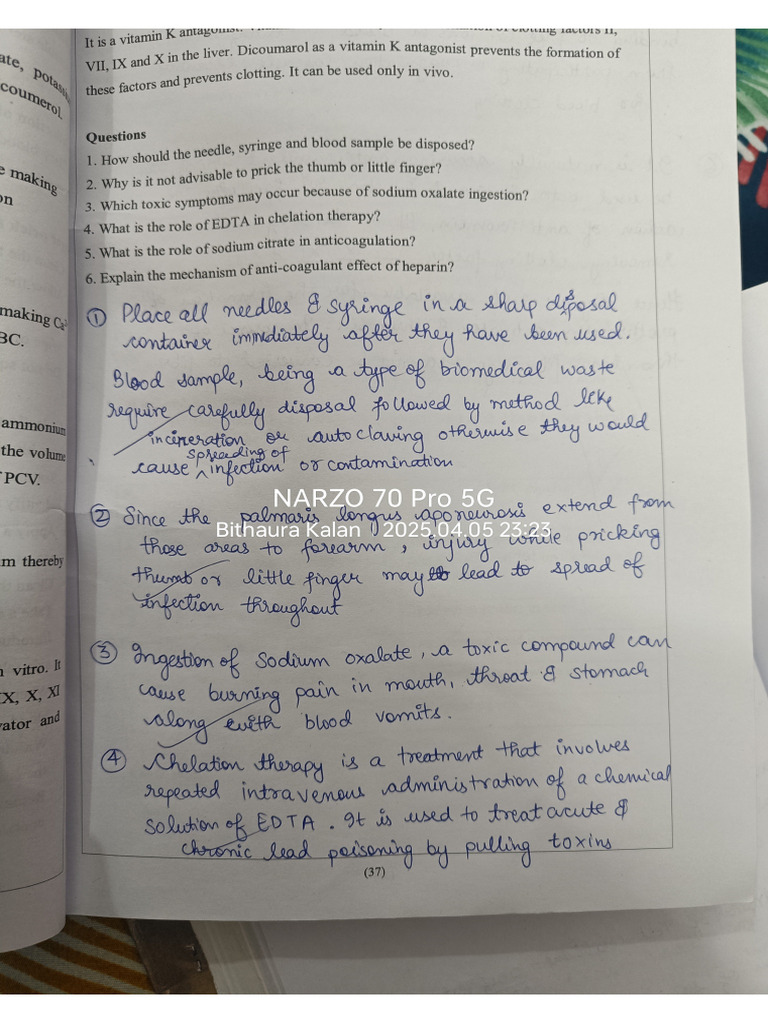 It is a vitamin K antagonist.
VII, IX and X in the liver. Dicoumarol as a vitamin K antagonist prevents the formation of
these factors and prevents clotting. It can be used only in vivo.
Questions
1. How should the needle, syringe and blood sample be disposed?
2. Why is it not advisable to prick the thumb or little finger?
3. Which toxic symptoms may occur because of sodium oxalate ingestion?
4. What is the role of EDTA in chelation therapy?
5. What is the role of sodium citrate in anticoagulation?
6. Explain the mechanism of anti-coagulant effect of heparin?
① Place all needles & syringe in a sharp disposal
container immediately after they have been used.
Blood sample, being a type of biomedical waste
require carefully disposal followed by method like
incineration or autoclaving otherwise they would
cause spreading of infection or contamination
② Since the palmaris longus aponeurosis extend from
those areas to forearm, injury while pricking
thumb or little finger may lead to spread of
infection throughout
③ Ingestion of Sodium oxalate, a toxic compound can
cause burning pain in mouth, throat & stomach
along with blood vomits.
④ Chelation therapy is a treatment that involves
repeated intravenous administration of a chemical
solution of EDTA. It is used to treat acute &
chronic lead poisoning by pulling toxins
(37)
ate, potass
coumerol,
e making
on
making Ca²
BC.
ammonium
the volume
PCV.
m thereby
vitro. It
IX, X, XI
vator and
NARZO 70 Pro 5G
Bithaura Kalan | 2025.04.05 23:23